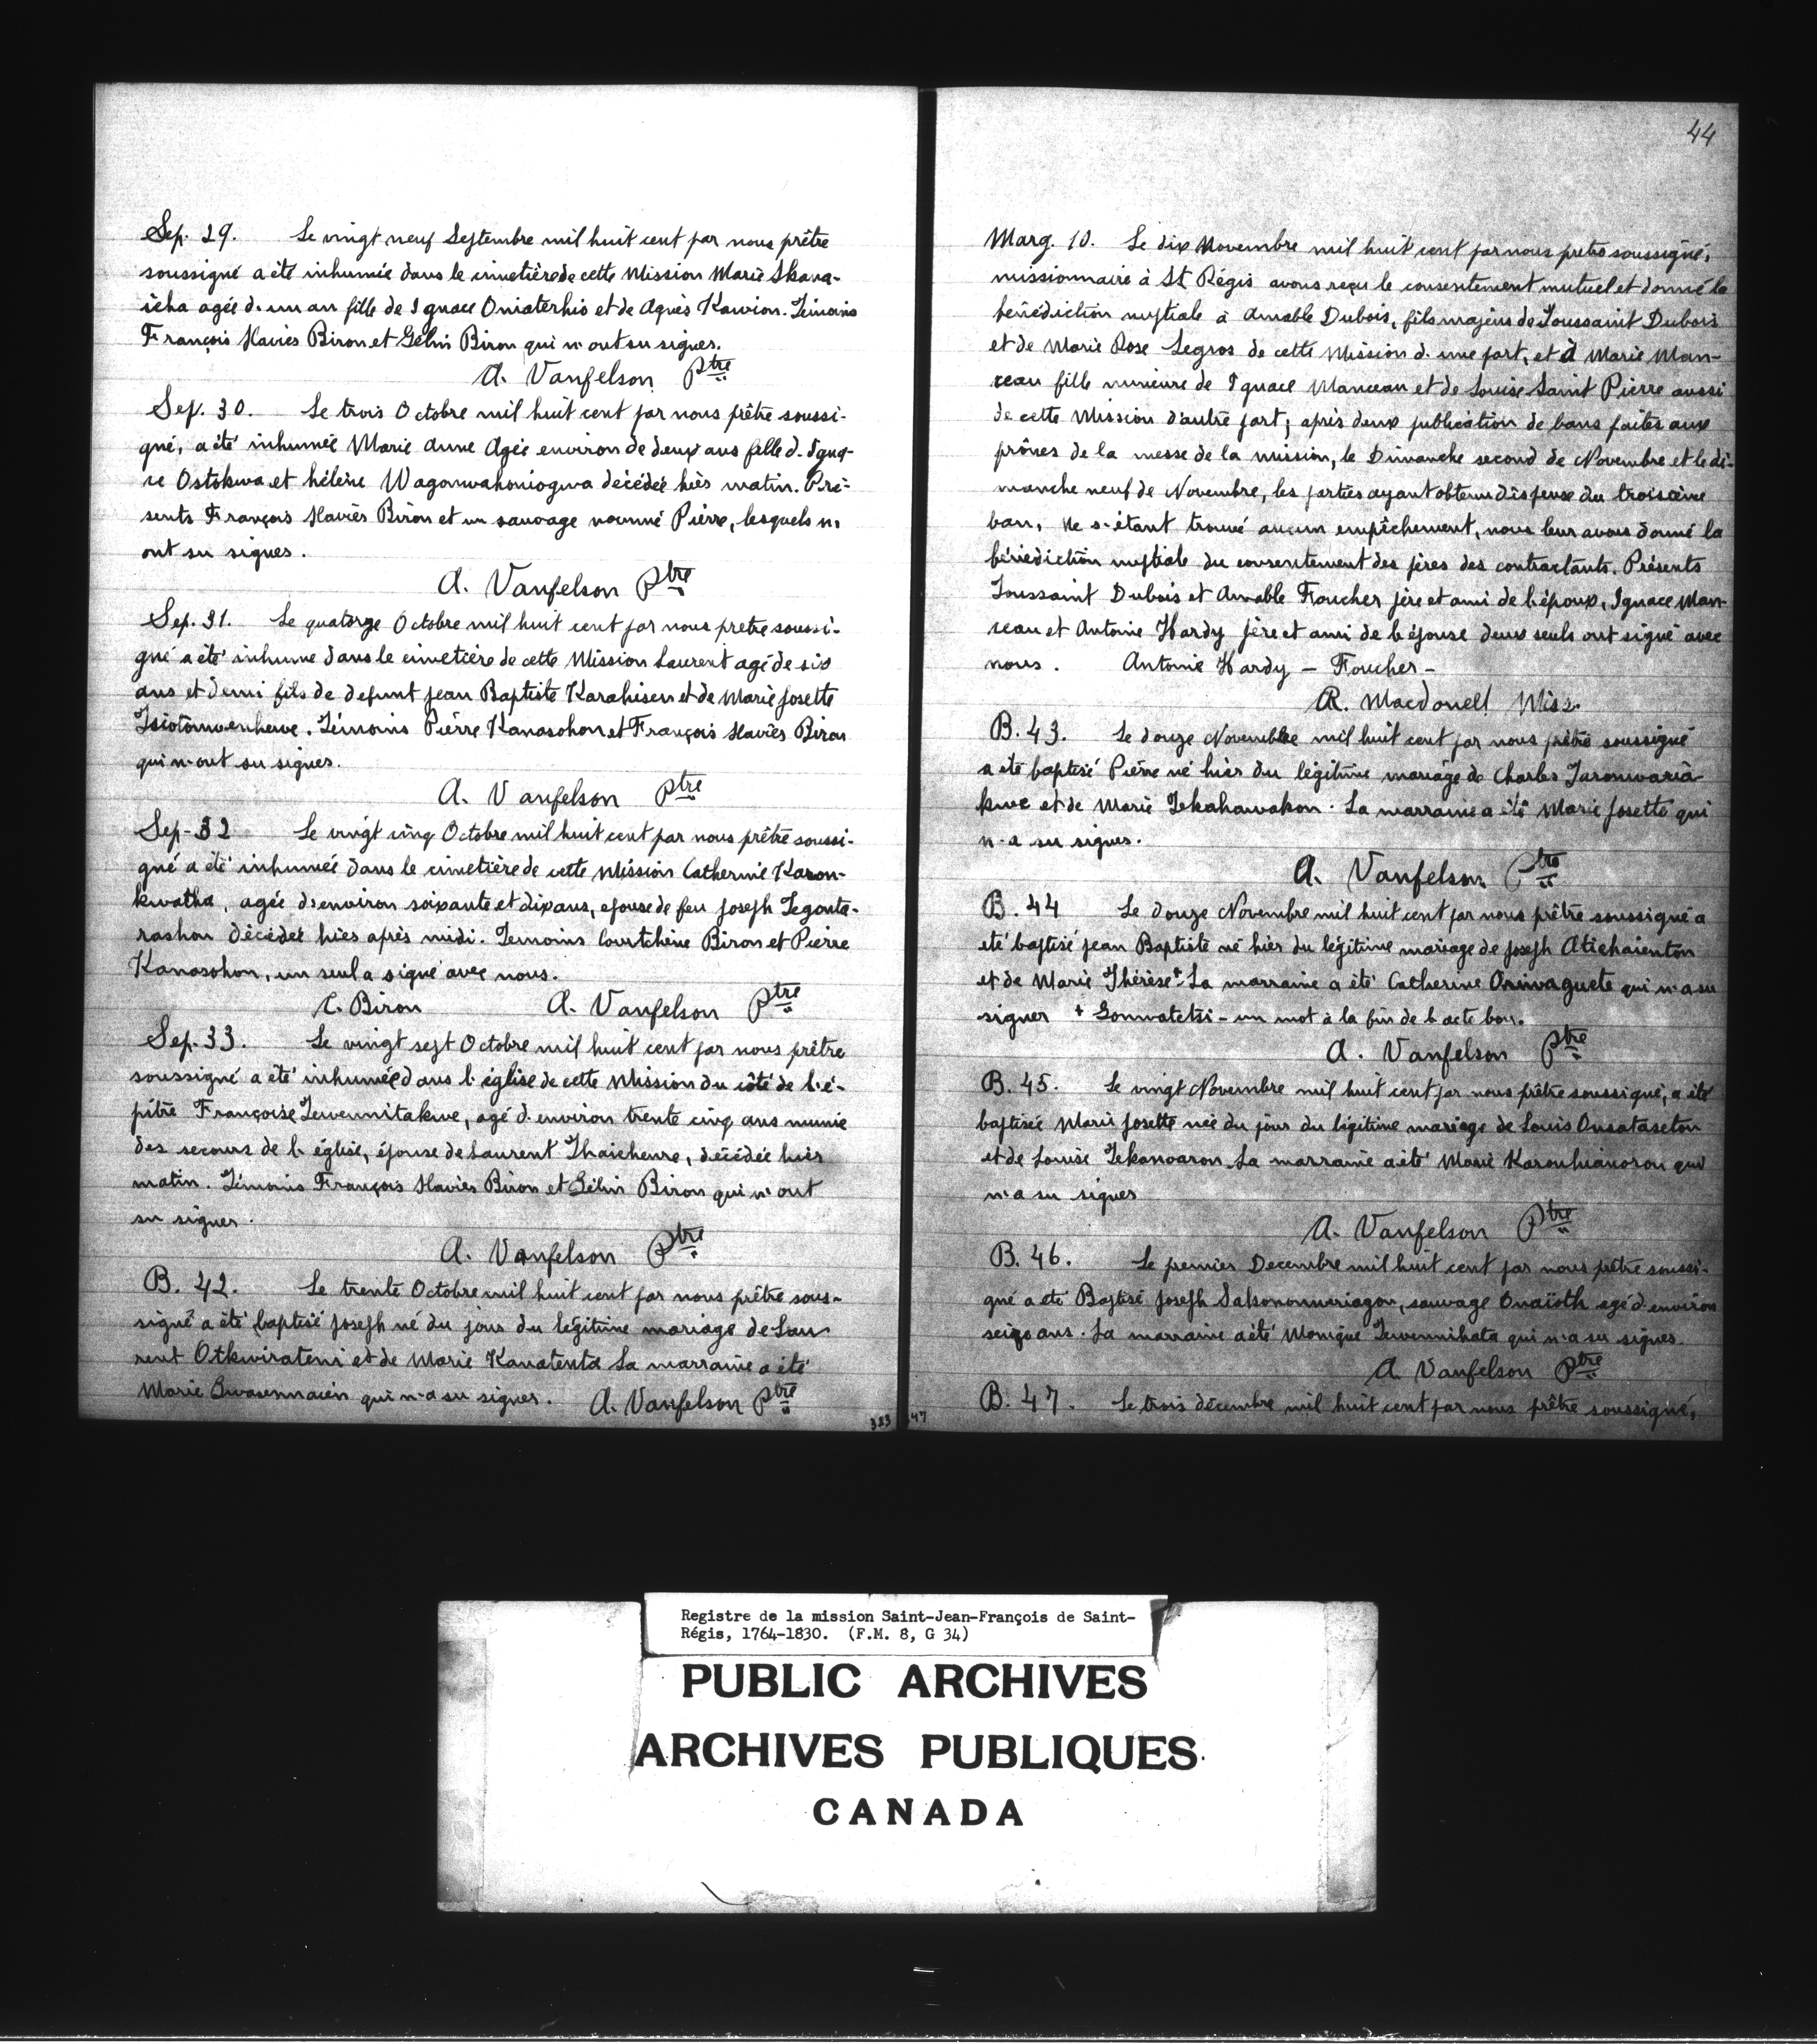 Sep. 29. Le vingt neuf Septembre mil huit cent par nous prêtre
soussigné a été inhumée dans le cimetière de cette Mission Marie Skana-
icha agée d'un an fille de Ignace Oniaterhio et de Agnès Kawion. Témoins
François Xavier Biron et Gélin Biron qui n'ont su signer.
A. Vanfelson Ptre
Sep. 30. Le trois Octobre mil huit cent par nous prêtre soussi-
gné, a été inhumée Marie Anne Agée environ de deux ans fille d'Igna-
ce Ostokwa et hélène Wagonwahoniogwa décédée hier matin. Pré-
sents François Xavier Biron et un sauvage nommé Pierre, lesquels n'
ont su signer.
A. Vanfelson Ptre
Sep. 31. Le quatorze Octobre mil huit cent par nous prêtre soussi-
gné a été inhumé dans le cimetière de cette Mission Laurent agé de six
ans et demi fils de defunt Jean Baptiste Karahisen et de Marie Josette
Tsiotonwenhewe. Témoins Pierre Kanasohon et François Xavier Biron
qui n'ont su signer.
A. Vanfelson Ptre
Sep. 32 Le vingt cinq Octobre mil huit cent par nous prêtre soussi-
gné a été inhumée dans le cimetière de cette Mission Catherine Karon-
kwatha, agée d'environ soixante et dix ans, epouse de feu Joseph Tegonta-
rashon décédée hier après midi. Temoins Courtchène Biron et Pierre
Kanasohon, un seul a signé avec nous.
C. Biron A. Vanfelson Ptre
Sep. 33. Le vingt sept Octobre mil huit cent par nous prêtre
soussigné a été inhumée dans l'église de cette Mission du côté de l'é-
pitre Françoise Tewennitakwe, agé d'environ trente cinq ans munie
des secours de l'église, épouse de Laurent Thaichenre, décédée hier
matin. Témoins François Xavier Biron et Gélin Biron qui n'ont
su signer.
A. Vanfelson Ptre
B. 42. Le trente Octobre mil huit cent par nous prêtre sous-
signé a été baptisé Joseph né du jour du légitime mariage de Lau
rent Otkwirateni et de Marie Kanatenta La marraine a été
Marie Gwasennaien qui n'a su signer. A. Vanfelson Ptre
383
44
Marg. 10. Le dix Novembre mil huit cent par nous pretre soussigné,
missionnaire à St Régis avons reçu le consentement mutuel et donné la
bénédiction nuptiale à Amable Dubois, fils majeur de Toussaint Dubois
et de Marie Rose Legros de cette Mission d'une part, et à Marie Man-
ceau fille mineure de Ignace Manceau et de Louise Saint Pierre aussi
de cette Mission d'autre part; après deux publication de bans faites aux
prônes de la messe de la mission, le Dimanche second de Novembre et le di-
manche neuf de Novembre, les parties ayant obtenu dispense du troisième
ban, Ne s'étant trouvé aucun empêchement, nous leur avons donné la
bénédiction nuptiale du consentement des pères des contractants. Présents
Toussaint Dubois et Amable Foucher père et ami de l'époux, Ignace Man-
ceau et Antoine Hardy père et ami de l'épouse deux seuls ont signé avec
nous. Antoine Hardy – Foucher –
R. Macdonell Miss.
B. 43. Le douze Novembre mil huit cent par nous prêtre soussigné
a été baptisé Pierre né hier du légitime mariage de Charles Taronwaria
kwe et de Marie Tekahawakon. La marraine a été Marie Josette qui
n'a su signer.
A. Vanfelson Ptre
B. 44 Le douze Novembre mil huit cent par nous prêtre soussigné a
eté baptisé Jean Baptiste né hier du légitime mariage de Joseph Atichaienton
et de Marie Thérèse + La marraine a été Catherine Oriwaguete qui n'a su
signer + Gonwatetsi – un mot à la fin de l'acte bon.
A. Vanfelson Ptre
B. 45. Le vingt Novembre mil huit cent par nous prêtre soussigné, a été
baptisée Marie Josette née du jour du légitime mariage de Louis Onsataseton
et de Louise Tekanoaron. La marraine a été Marie Karonhianoron qui
n'a su signer
A. Vanfelson Ptre
B. 46. Le premier Decembre mil huit cent par nous prêtre soussi-
gné a été Baptisé Joseph Saksononweriagon, sauvage Onaïoth agé d'environ
seize ans. La marraine a été Monique Tewennihata qui n'a su signer.
A. Vanfelson Ptre
B. 47. Le trois décembre mil huit cent par nous prêtre soussigné,
47
Registre de la mission Saint-Jean-François de Saint-
Régis, 1764-1830. (F.M. 8, G 34)
PUBLIC ARCHIVES
ARCHIVES PUBLIQUES
CANADA